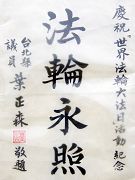 慶祝世界法輪大法日活動紀念
法輪永照
台北縣
議員 葉正森 敬題